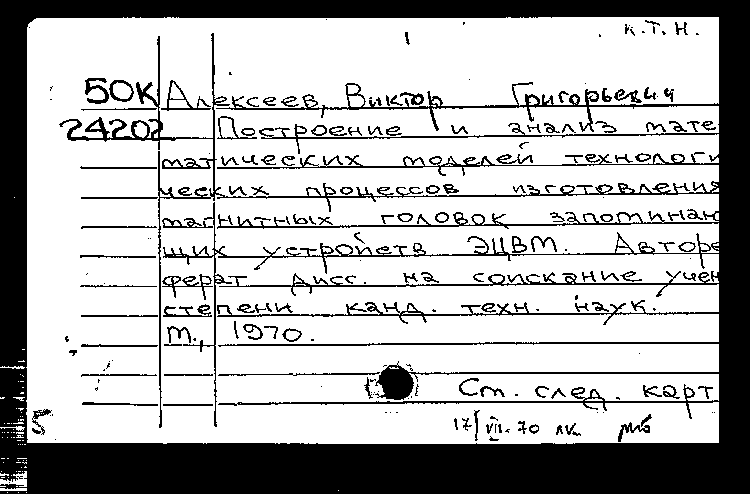 К.Т.Н.
50К Алексеев, Виктор Григорьевич
24202 Построение и анализ мате
матических моделей технологи
ческих процессов изготовления
магнитных головок запоминаю
щих устройств ЭЦВМ. Авторе
ферат дисс. на соискание учен
степени канд. техн. наук.
М., 1970.
См. след. карт
5
17/VII-70 лк